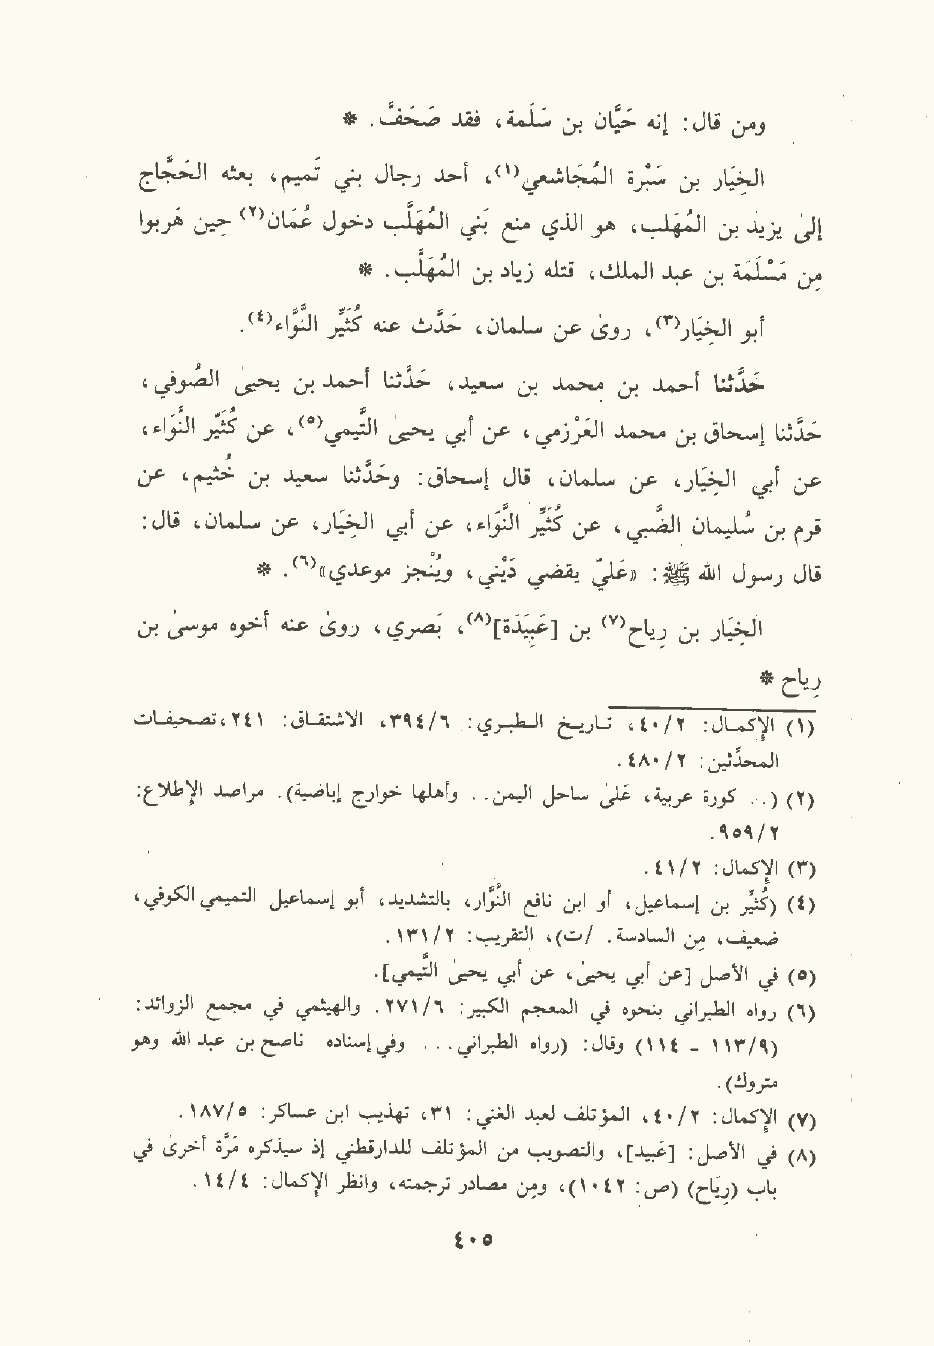 ومن قال: إنه حَيَّان بن سَلَمة، فقد صَحَفَّ. *
الخِيَار بن سَبْرة المُجَاشعي(١)، أحد رجال بني تَميم، بعثه الحَجَّاج
إلىٰ يزيد بن المُهَلب، وهو الذي منع بَنِي المُهَلَّب دخول عُمَان(٢) حِين هَربوا
مِن مَسْلَمَة بن عبد الملك، قتله زياد بن المُهَلَّب. *
أبو الخِيَار(٣)، روىٰ عن سلمان، حَدَّث عنه كُثَيِّر النَّوَّاء(٤).
حَدَّثنا أحمد بن محمد بن سعيد، حَدَّثنا أحمد بن يحيىٰ الصُوفي،
حَدَّثنا إسحاق بن محمد العَرْزمي، عن أبي يحيىٰ التَّيمي(٥)، عن كُثَيِّر النَّوَّاء،
عن أبي الخِيَار، عن سلمان، قال إسحاق: وحَدَّثنا سعيد بن خُثيم، عن
قرم بن سُليمان الضَّبي، عن كُثَيِّر النَّوَّاء، عن أبي الخِيَار، عن سلمان، قال:
قال رسول الله ﷺ: «عَليّ يقضي دَيْنِي، ويُنْجز موعدي»(٦). *
الخِيَار بن رِياح(٧) بن [عَبِيَدة](٨)، بَصري، روىٰ عنه أخوه موسىٰ بن
رِياح *
(١) الإكمال: ٤٠/٢، تاريخ الطبري: ٣٩٤/٦، الاشتقاق: ٢٤١، تصحيفات
المحدِّثين: ٤٨٠/٢.
(٢) (.. كورة عربية، علىٰ ساحل اليمن.. وأهلها خوارج إباضية). مراصد الإطلاع:
٩٥٩/٢.
(٣) الإكمال: ٤١/٢.
(٤) (كُثيِّر بن إسماعيل، أو ابن نافع النُّوَّار، بالتشديد، أبو إسماعيل التميمي الكوفي،
ضعيف، مِن السادسة. /ت)، التقريب: ١٣١/٢.
(٥) في الأصل [عن أبي يحيىٰ، عن أبي يحيىٰ التَّيمي].
(٦) رواه الطبراني بنحوه في المعجم الكبير: ٢٧١/٦. والهيثمي في مجمع الزوائد:
(١١٣/٩ - ١١٤) وقال: (رواه الطبراني... وفي إسناده ناصح بن عبد الله وهو
متروك).
(٧) الإكمال: ٤٠/٢، المؤتلف لعبد الغني: ٣١، تهذيب ابن عساكر: ١٨٧/٥.
(٨) في الأصل: [عَبيد]، والتصويب من المؤتلف للدارقطني إذ سيذكره مَرَّة أخرىٰ في
باب (رِيَاح) (ص: ١٠٤٢)، ومِن مصادر ترجمته، وانظر الإكمال: ١٤/٤.
٤٠٥